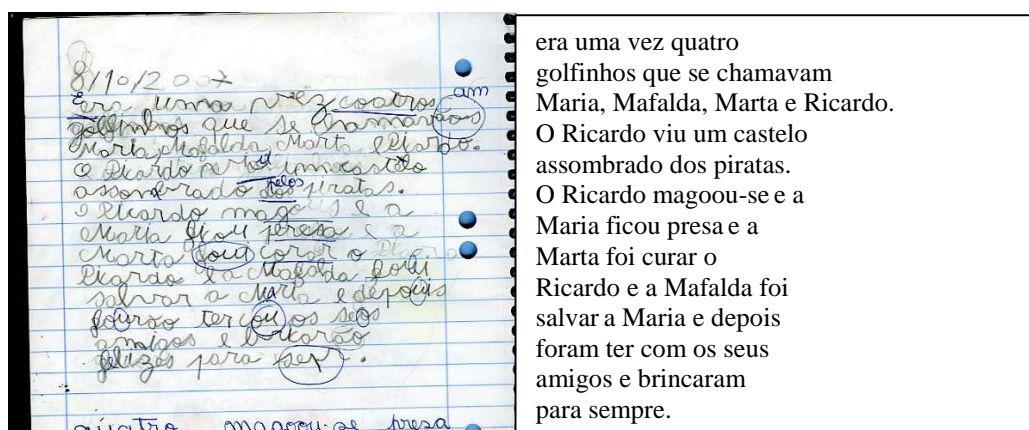 8/10/2007
Era uma vez coatros
golfinhos que se chamavãos am
Maria, Mafalda, Marta e Ricardo.
O Ricardo viu um castelo
assombrado dos pelos piratas.
O Ricardo magous e a
Maria ficou peresa e a
Marta foui corar o
Ricardo e a Mafalda foui
salvar a Maria e depouis
fourão ter cou os seos
amigos e bricarão
felizes para sepr.
quatro magoou-se presa
era uma vez quatro
golfinhos que se chamavam
Maria, Mafalda, Marta e Ricardo.
O Ricardo viu um castelo
assombrado dos piratas.
O Ricardo magoou-se e a
Maria ficou presa e a
Marta foi curar o
Ricardo e a Mafalda foi
salvar a Maria e depois
foram ter com os seus
amigos e brincaram
para sempre.